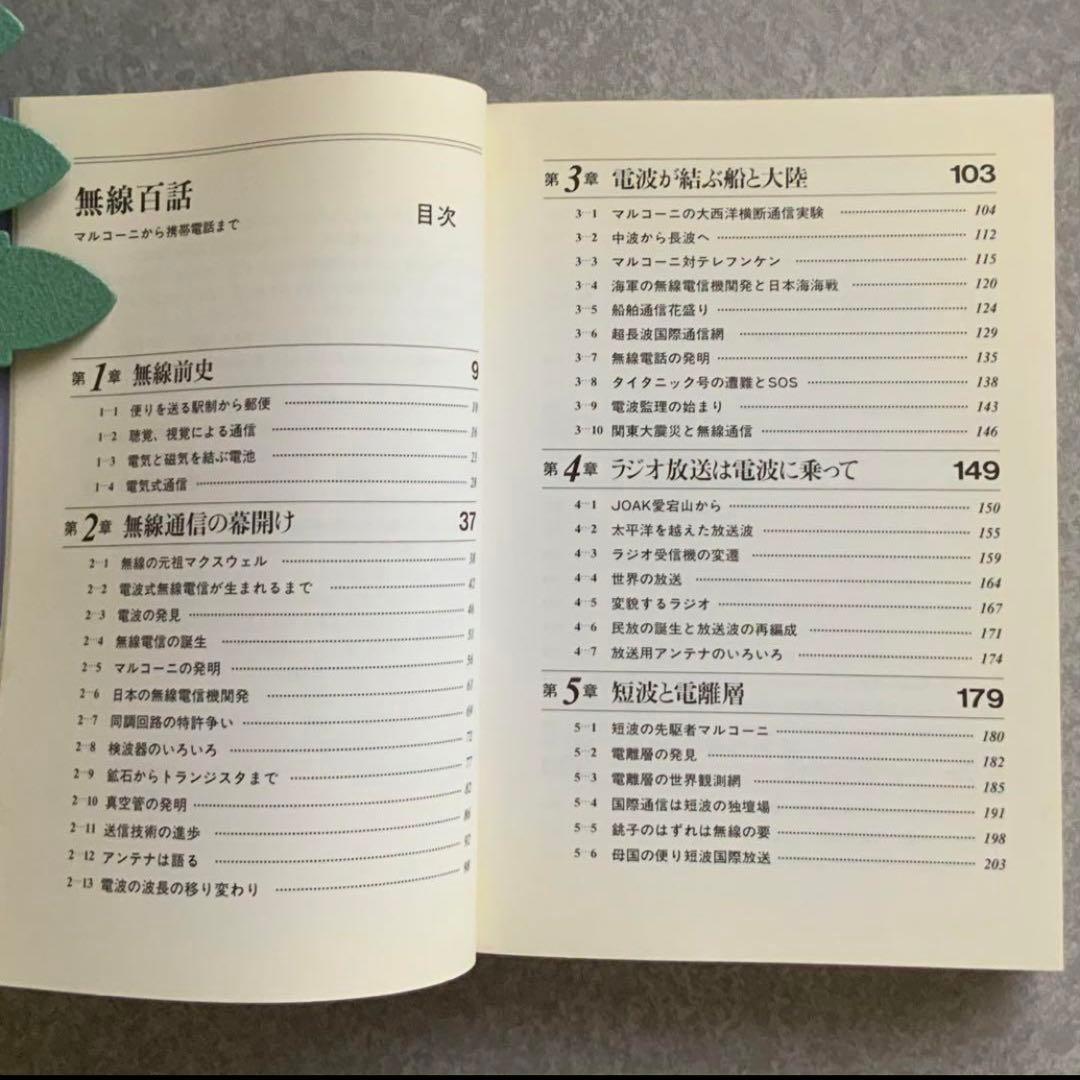 無線百話
マルコーニから携帯電話まで
目次
第1章 無線前史 9
1-1 便りを送る駅制から郵便 10
1-2 聴覚、視覚による通信 16
1-3 電気と磁気を結ぶ電池
1-4 電気式通信
第2章 無線通信の幕開け 37
2-1 無線の元祖マクスウェル 38
2-2 電波式無線電信が生まれるまで 42
2-3 電波の発見 46
2-4 無線電信の誕生 51
2-5 マルコーニの発明 56
2-6 日本の無線電信機開発
2-7 同調回路の特許争い 69
2-8 検波器のいろいろ 72
2-9 鉱石からトランジスタまで 77
2-10 真空管の発明 82
2-11 送信技術の進歩 86
2-12 アンテナは語る 92
2-13 電波の波長の移り変わり 98
第3章 電波が結ぶ船と大陸 103
3-1 マルコーニの大西洋横断通信実験 104
3-2 中波から長波へ 112
3-3 マルコーニ対テレフンケン 115
3-4 海軍の無線電信機開発と日本海海戦 120
3-5 船舶通信花盛り 124
3-6 超長波国際通信網 129
3-7 無線電話の発明 135
3-8 タイタニック号の遭難とSOS 138
3-9 電波監理の始まり 143
3-10 関東大震災と無線通信 146
第4章 ラジオ放送は電波に乗って 149
4-1 JOAK愛宕山から 150
4-2 太平洋を越えた放送波 155
4-3 ラジオ受信機の変遷 159
4-4 世界の放送 164
4-5 変貌するラジオ 167
4-6 民放の誕生と放送波の再編成 171
4-7 放送用アンテナのいろいろ 174
第5章 短波と電離層 179
5-1 短波の先駆者マルコーニ 180
5-2 電離層の発見 182
5-3 電離層の世界観測網 185
5-4 国際通信は短波の独壇場 191
5-5 銚子のはずれは無線の要 198
5-6 母国の便り短波国際放送 203